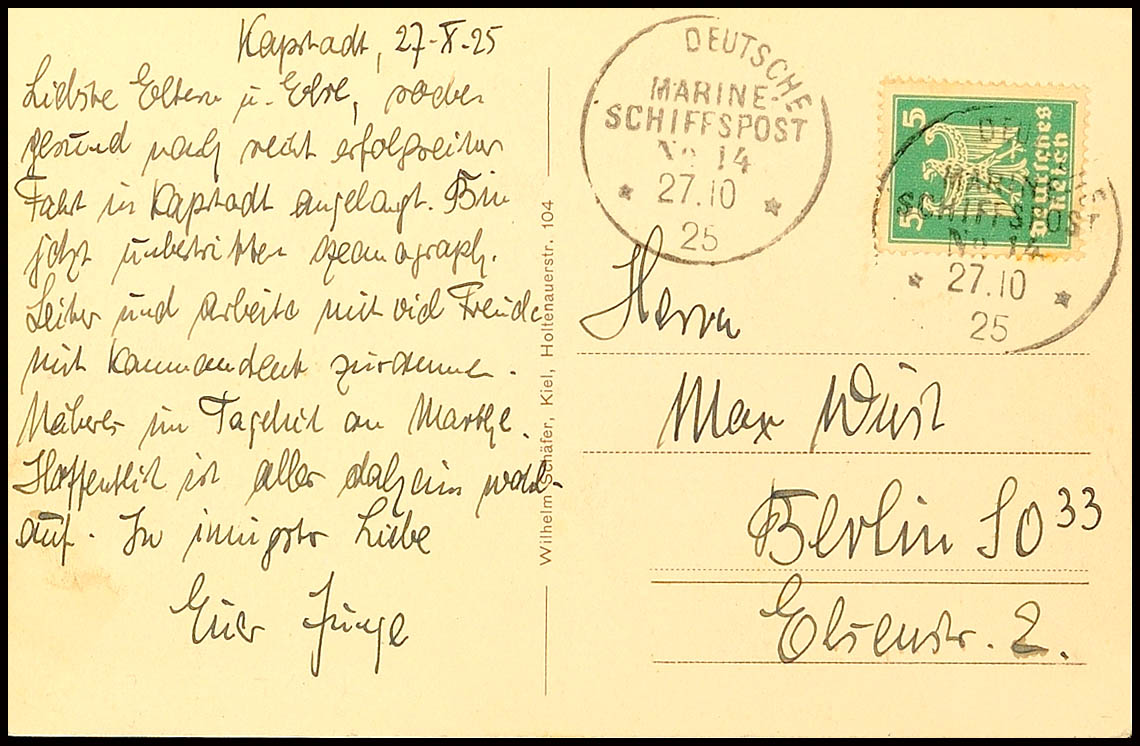 Kapstadt, 27-X-25
Liebste Eltern u. Else, soeben
gesund nach recht erfolgreicher
Fahrt in Kapstadt angelangt. Bin
jetzt unbestritten ozeanograph.
Leiter und arbeite mit viel Freude
mit Kommandant zusammen.
Näheres im Tagebuch an Marthe.
Hoffentlich ist alles daheim wohl-
auf. In innigster Liebe
Euer Junge
Wilhelm Schäfer, Kiel, Holtenauerstr. 104
DEUTSCHE
MARINE-
SCHIFFSPOST
No 14
* 27.10 *
25
5 5
Deutsches
Reich
DEUTSCHE
MARINE-
SCHIFFSPOST
No 14
* 27.10 *
25
Herrn
Max Wüst
Berlin SO 33
Elsenstr. 2.